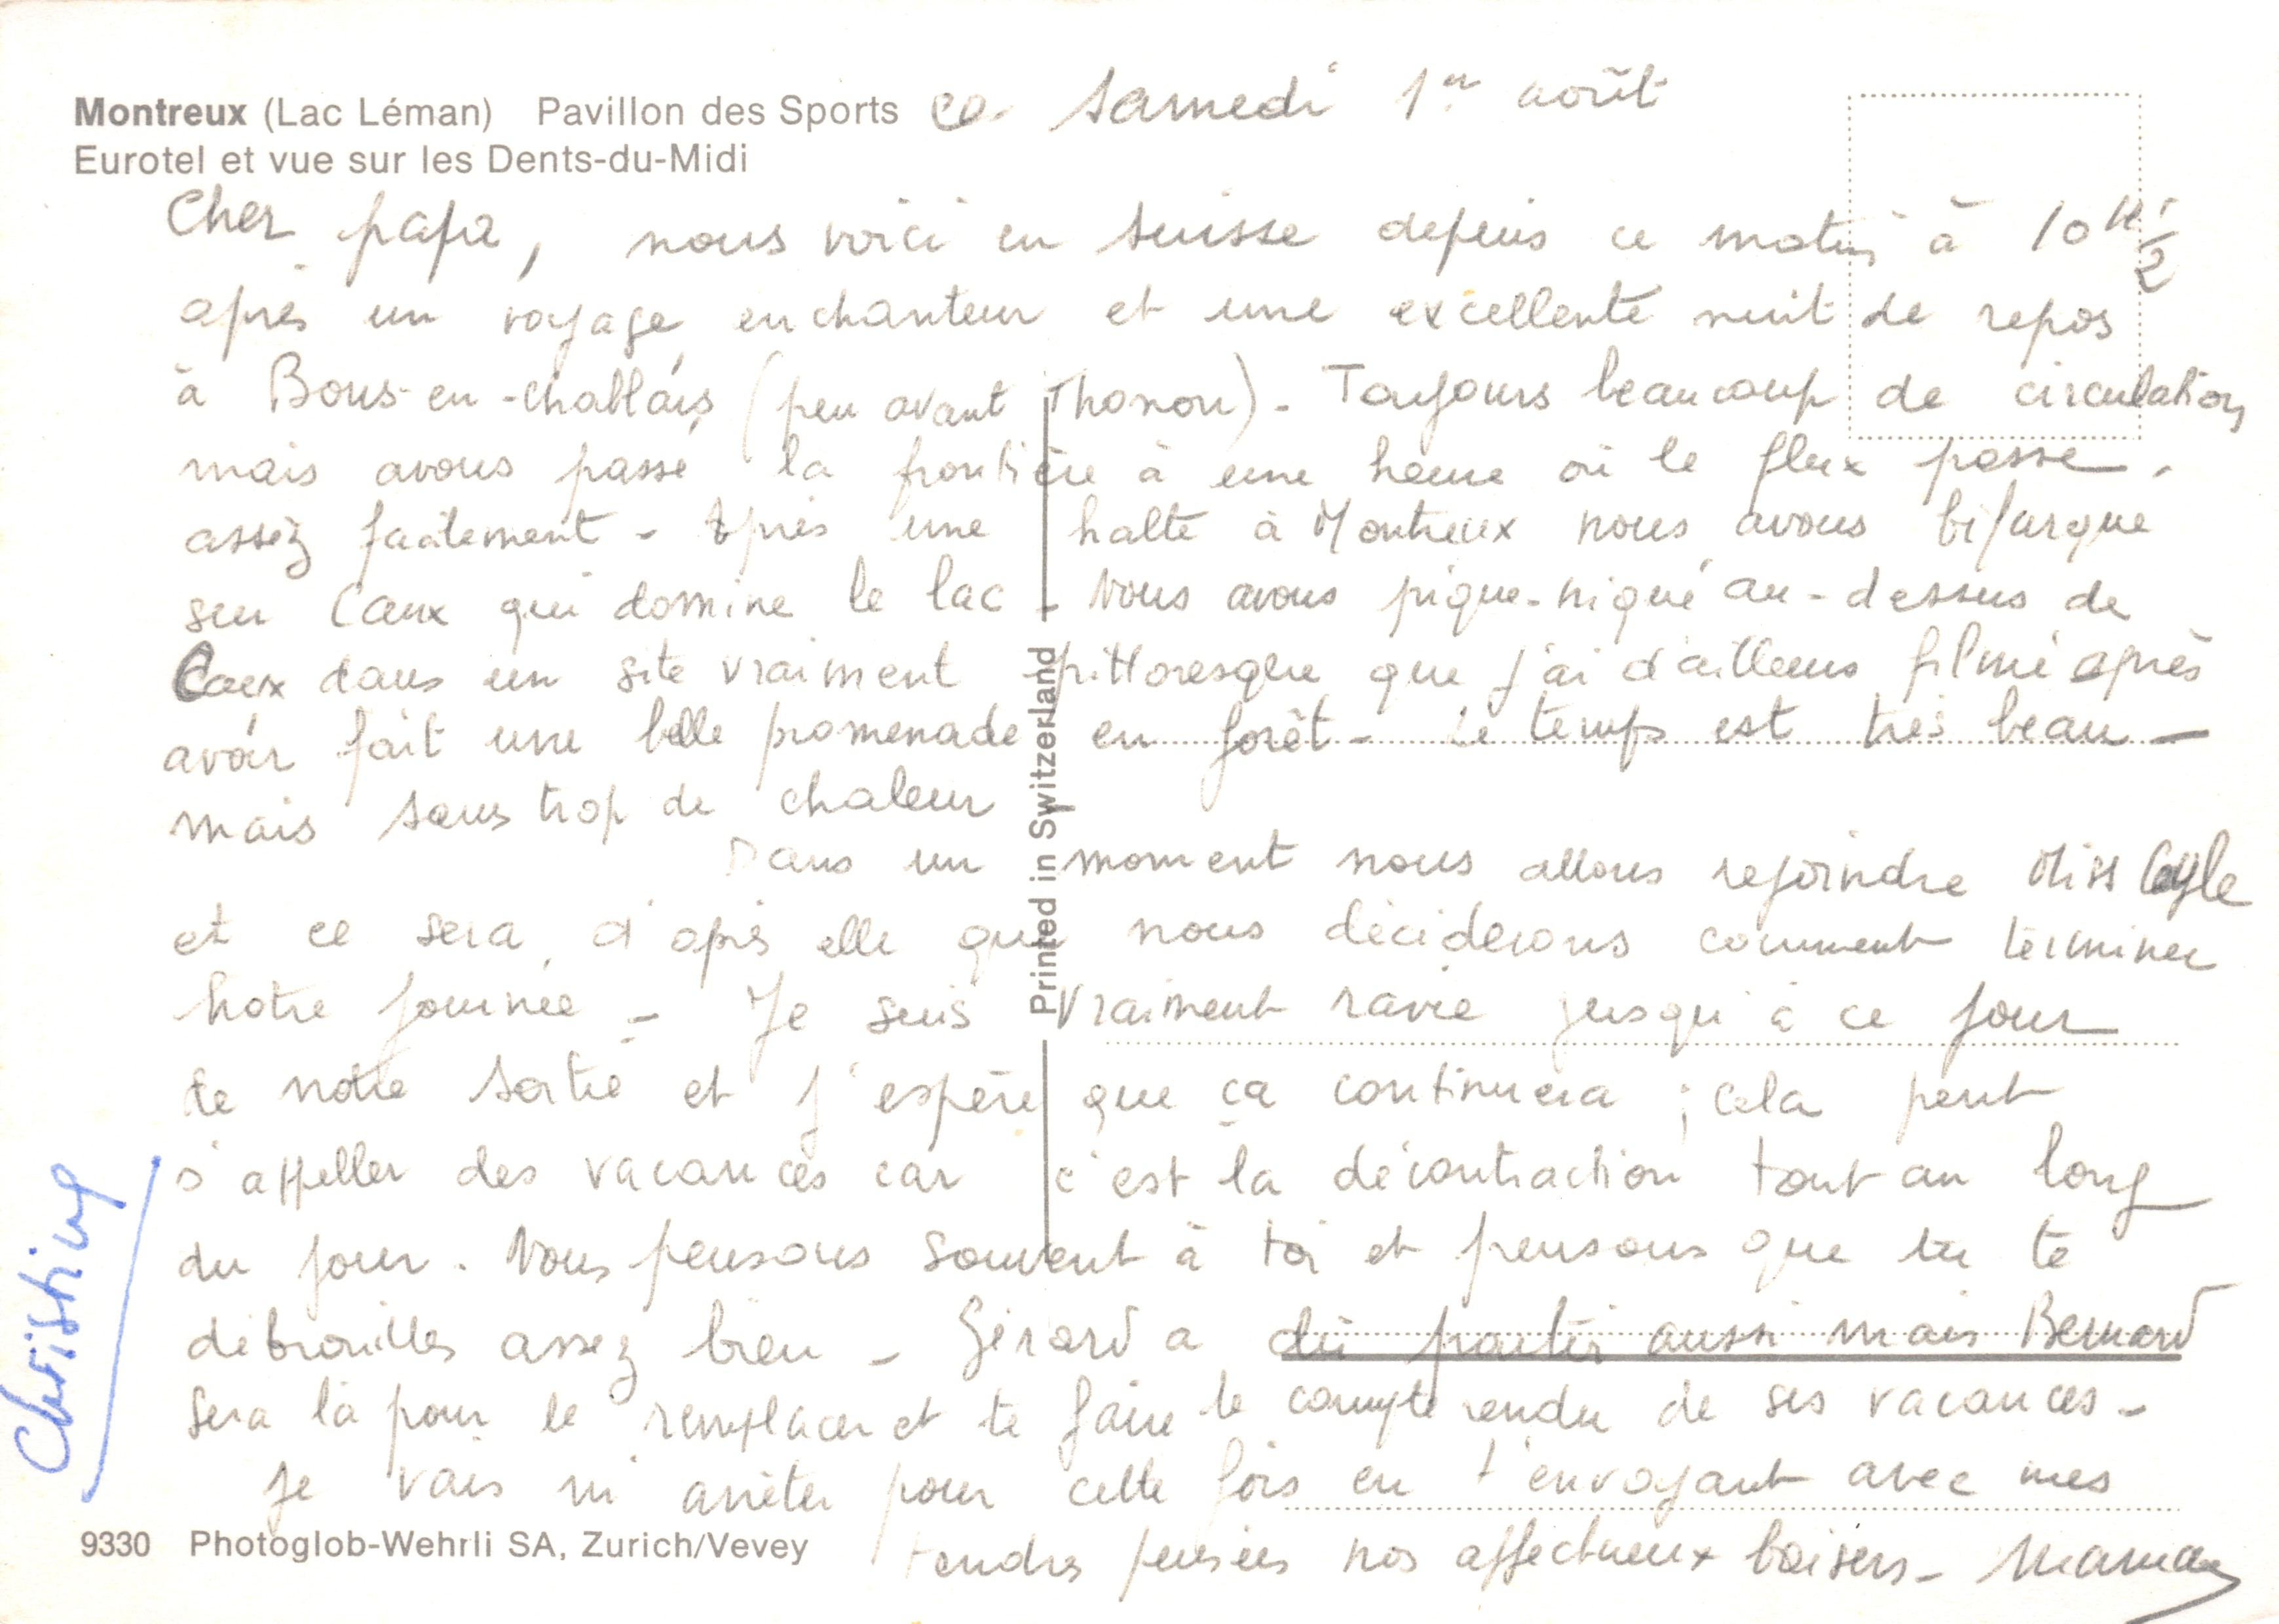 Montreux (Lac Léman) Pavillon des Sports
Eurotel et vue sur les Dents-du-Midi
ce samedi 1er août
Cher papa, nous voici en Suisse depuis ce matin à 10 H 1/2
après un voyage enchanteur et une excellente nuit de repos
à Bons-en-Chablais (peu avant Thonon) - Toujours beaucoup de circulation
mais avons passé la frontière à une heure où le flux passe
assez facilement - Après une halte à Montreux nous avons bifurqué
sur Caux qui domine le lac - Nous avons pique-niqué au-dessus de
Caux dans un site vraiment pittoresque que j'ai d'ailleurs filmé après
avoir fait une belle promenade en forêt - Le temps est très beau -
mais sans trop de chaleur
Dans un moment nous allons rejoindre Miss
et ce sera d'après elle que nous déciderons comment terminer
notre journée - Je suis vraiment ravie jusqu'à ce jour
de notre sortie et j'espère que ça continuera ; cela peut
s'appeller des vacances car c'est la décontraction tout au long
du jour. Nous pensons souvent à toi et pensons que tu te
débrouilles assez bien - Gérard a dû partir aussi mais Bernard
sera là pour le remplacer et te faire le compte rendu de ses vacances -
Je vais m'arrêter pour cette fois en t'envoyant avec mes
tendres pensées nos affectueux baisers - Maman
Christine
Printed in Switzerland
9330 Photoglob-Wehrli SA, Zurich/Vevey